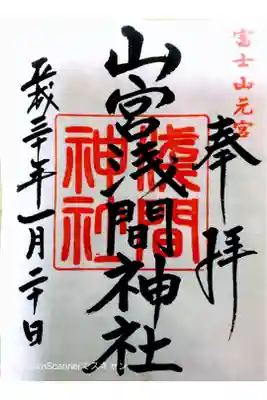 富士山元宮
奉拝
山宮浅間神社
浅間神社
平成三十年一月二十日
CamScannerでスキャン